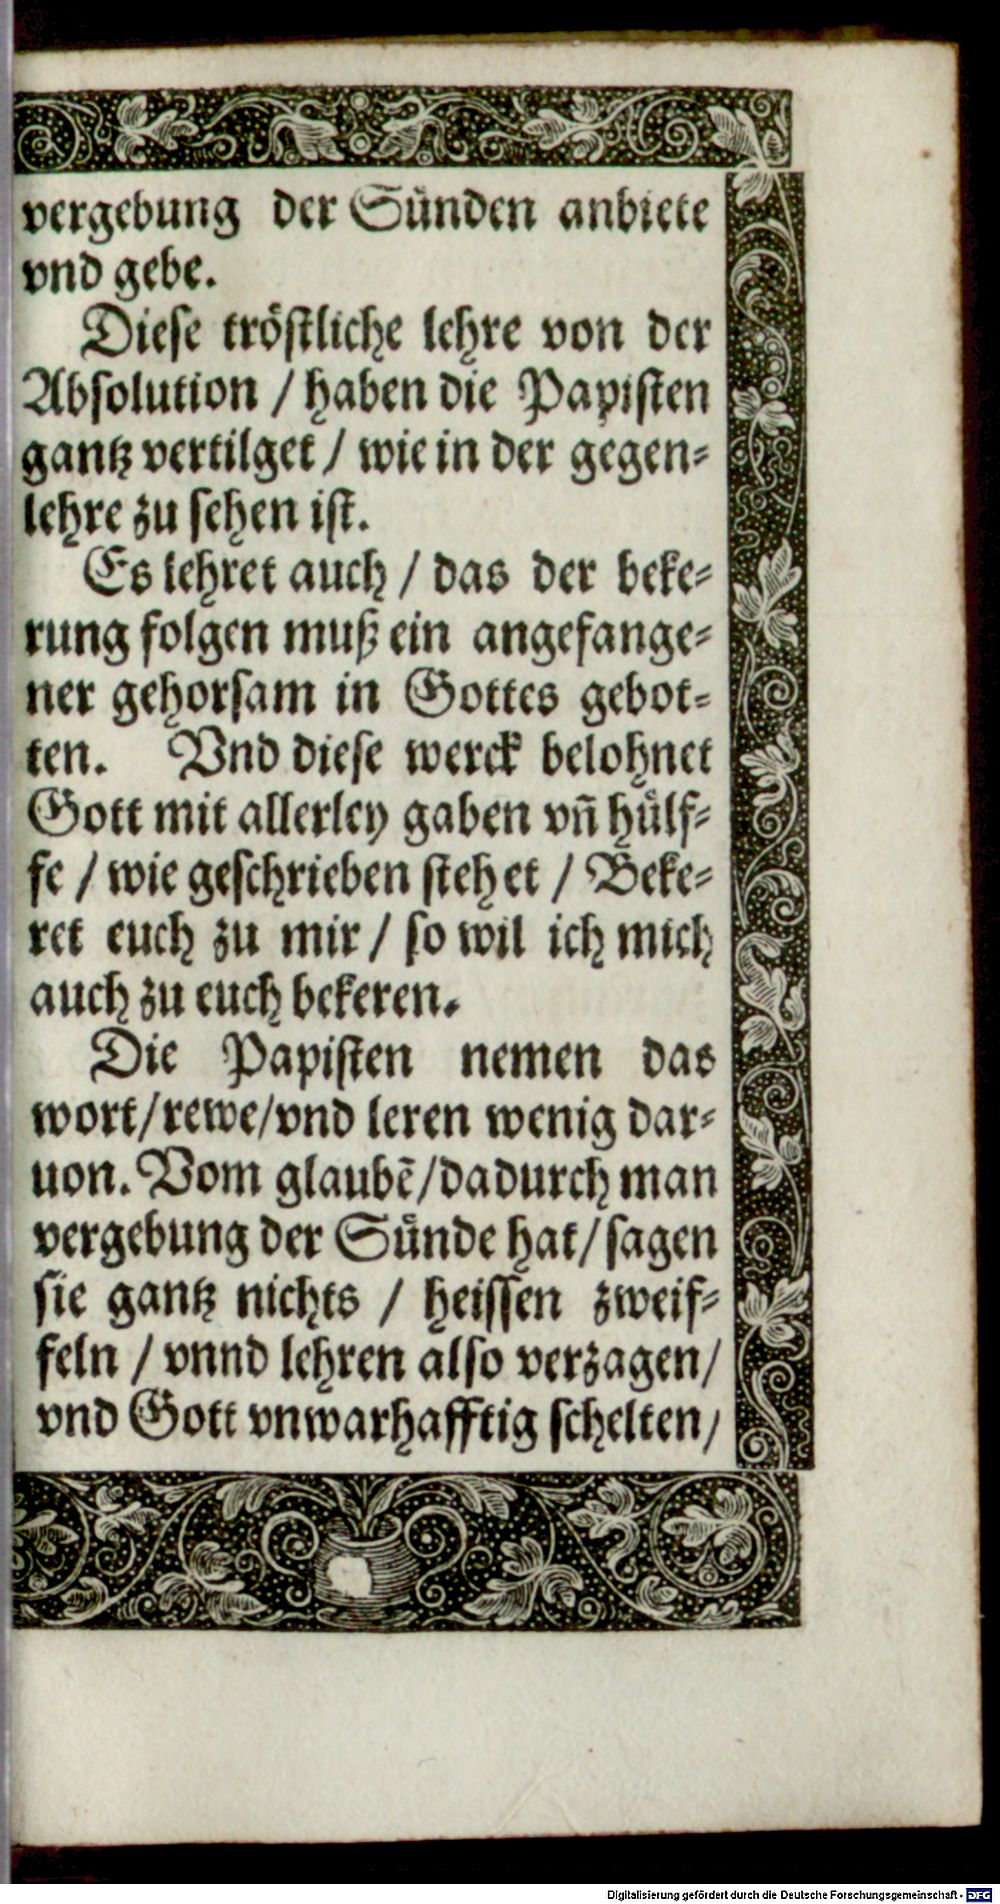 vergebung der Sünden anbiete
vnd gebe.
Diese tröstliche lehre von der
Absolution / haben die Papisten
gantz vertilget / wie in der gegen-
lehre zu sehen ist.
Es lehret auch / das der beke-
rung folgen muß ein angefange-
ner gehorsam in Gottes gebot-
ten. Vnd diese werck belohnet
Gott mit allerley gaben vñ hülf-
fe / wie geschrieben stehet / Beke-
ret euch zu mir / so wil ich mich
auch zu euch bekeren.
Die Papisten nemen das
wort/rewe/vnd leren wenig dar-
uon. Vom glaubẽ/dadurch man
vergebung der Sünde hat/sagen
sie gantz nichts / heissen zweif-
feln / vnnd lehren also verzagen/
vnd Gott vnwarhafftig schelten/
Digitalisierung gefördert durch die Deutsche Forschungsgemeinschaft - DFG